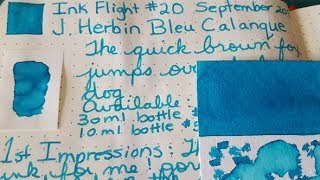 Ink Flight #20 September 20
J. Herbin Bleu Calanque
The quick brown fox
jumps ov
dog
Available
30ml bottle
10ml bottle $
1st Impressions: T
ink, for me I